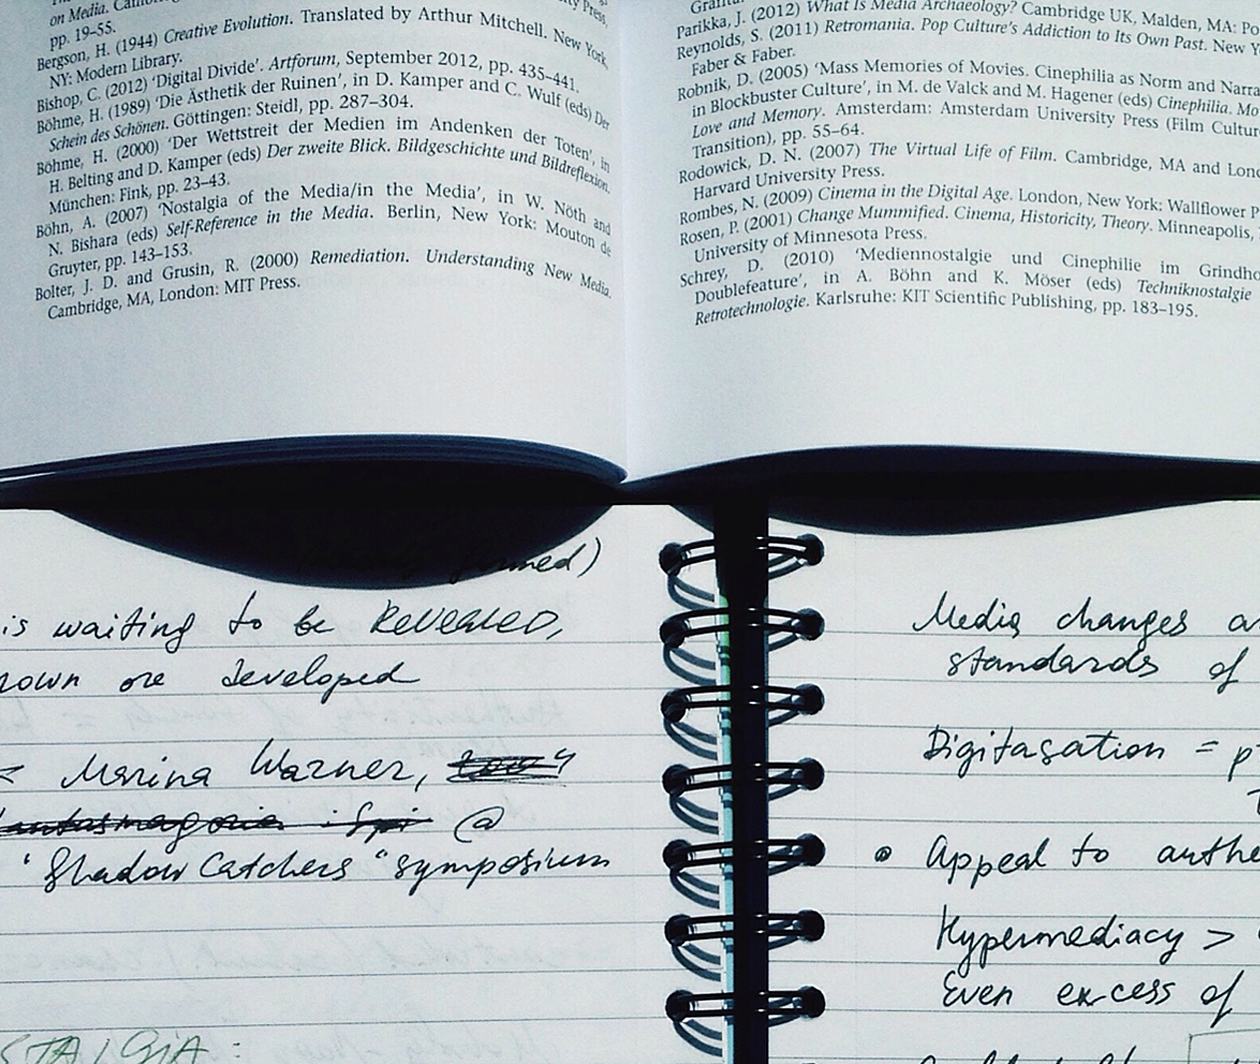 on Media.
pp. 19–55.
Bergson, H. (1944) Creative Evolution. Translated by Arthur Mitchell. New York,
NY: Modern Library.
Bishop, C. (2012) ‘Digital Divide’. Artforum, September 2012, pp. 435–441.
Böhme, H. (1989) ‘Die Ästhetik der Ruinen’, in D. Kamper and C. Wulf (eds) Der
Schein des Schönen. Göttingen: Steidl, pp. 287–304.
Böhme, H. (2000) ‘Der Wettstreit der Medien im Andenken der Toten’, in
H. Belting and D. Kamper (eds) Der zweite Blick. Bildgeschichte und Bildreflexion.
München: Fink, pp. 23–43.
Böhn, A. (2007) ‘Nostalgia of the Media/in the Media’, in W. Nöth and
N. Bishara (eds) Self-Reference in the Media. Berlin, New York: Mouton de
Gruyter, pp. 143–153.
Bolter, J. D. and Grusin, R. (2000) Remediation. Understanding New Media.
Cambridge, MA, London: MIT Press.
Parikka, J. (2012) What Is Media Archaeology? Cambridge UK, Malden, MA: Po
Reynolds, S. (2011) Retromania. Pop Culture’s Addiction to Its Own Past. New Y
Faber & Faber.
Robnik, D. (2005) ‘Mass Memories of Movies. Cinephilia as Norm and Narra
in Blockbuster Culture’, in M. de Valck and M. Hagener (eds) Cinephilia. Mo
Love and Memory. Amsterdam: Amsterdam University Press (Film Cultur
Transition), pp. 55–64.
Rodowick, D. N. (2007) The Virtual Life of Film. Cambridge, MA and Lond
Harvard University Press.
Rombes, N. (2009) Cinema in the Digital Age. London, New York: Wallflower P
Rosen, P. (2001) Change Mummified. Cinema, Historicity, Theory. Minneapolis,
University of Minnesota Press.
Schrey, D. (2010) ‘Mediennostalgie und Cinephilie im Grindho
Doublefeature’, in A. Böhn and K. Möser (eds) Techniknostalgie
Retrotechnologie. Karlsruhe: KIT Scientific Publishing, pp. 183–195.
is waiting to be REVEALED,
rown are developed
< Marina Warner,
@
‘Shadow Catchers“ symposium
STALGIA:
Media changes
standards of
Digitasation = p
• Appeal to authe
Hypermediacy >
Even excess of